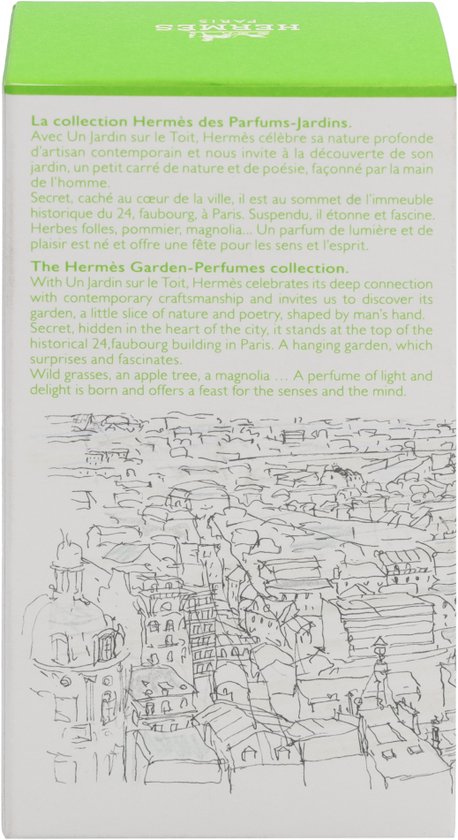 HERMÈS
PARIS
La collection Hermès des Parfums-Jardins.
Avec Un Jardin sur le Toit, Hermès célèbre sa nature profonde
d'artisan contemporain et nous invite à la découverte de son
jardin, un petit carré de nature et de poésie, façonné par la main
de l'homme.
Secret, caché au cœur de la ville, il est au sommet de l'immeuble
historique du 24, faubourg, à Paris. Suspendu, il étonne et fascine.
Herbes folles, pommier, magnolia... Un parfum de lumière et de
plaisir est né et offre une fête pour les sens et l'esprit.
The Hermès Garden-Perfumes collection.
With Un Jardin sur le Toit, Hermès celebrates its deep connection
with contemporary craftsmanship and invites us to discover its
garden, a little slice of nature and poetry, shaped by man's hand.
Secret, hidden in the heart of the city, it stands at the top of the
historical 24,faubourg building in Paris. A hanging garden, which
surprises and fascinates.
Wild grasses, an apple tree, a magnolia ... A perfume of light and
delight is born and offers a feast for the senses and the mind.